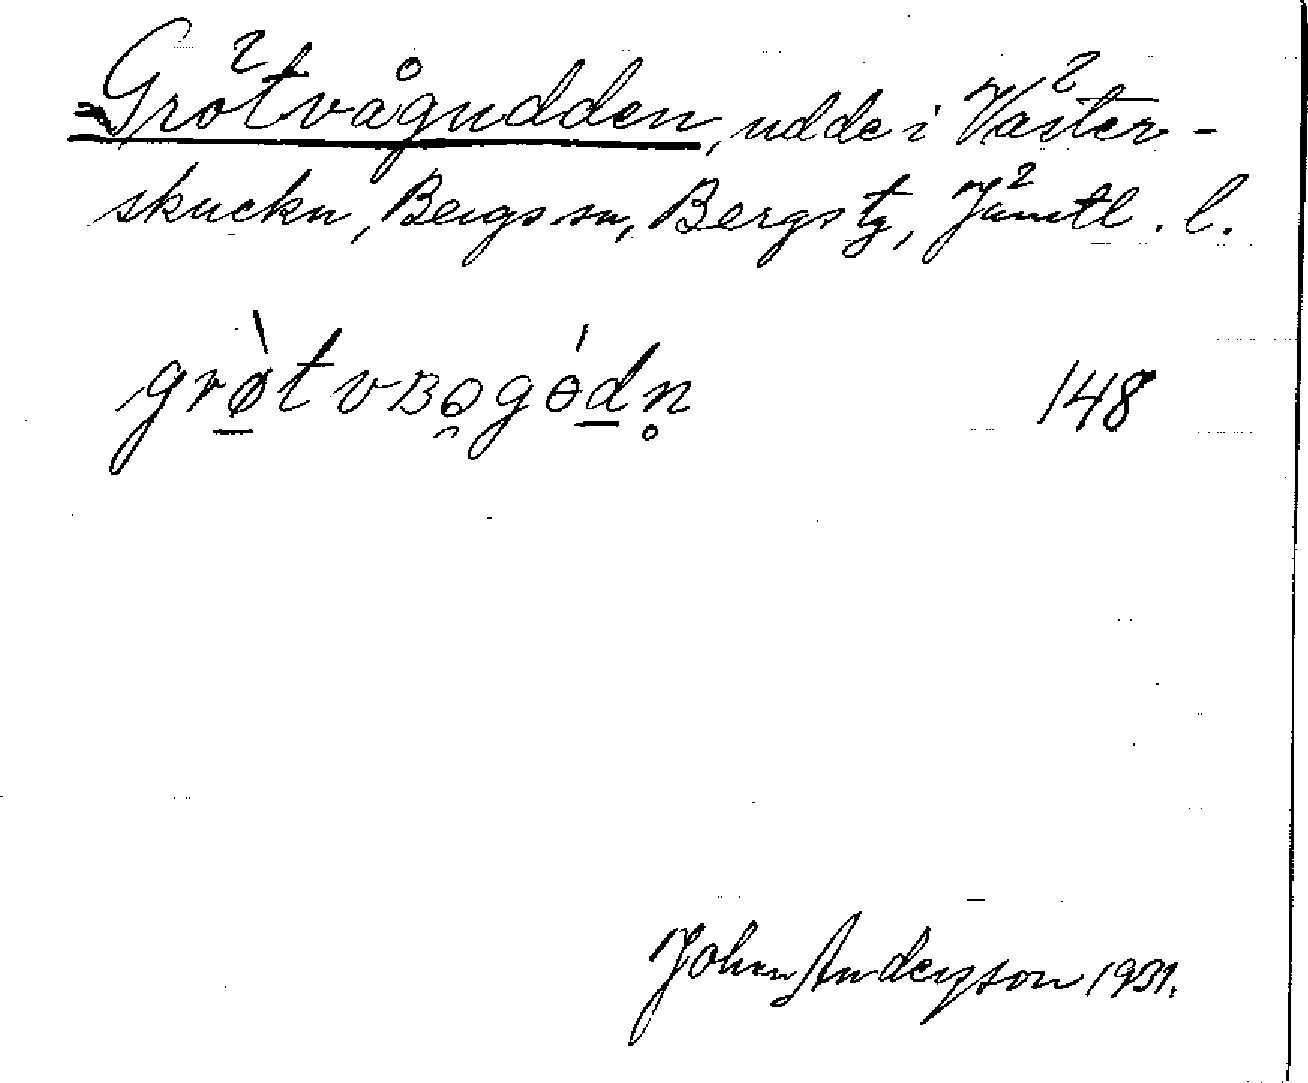 Grötvågudden, udde i Väster-
skuckn, Bergs sn, Bergs tg, Jämtl. l.
grø̀tvʙǫgɵ́dn̥ 148
John Andersson 1931.